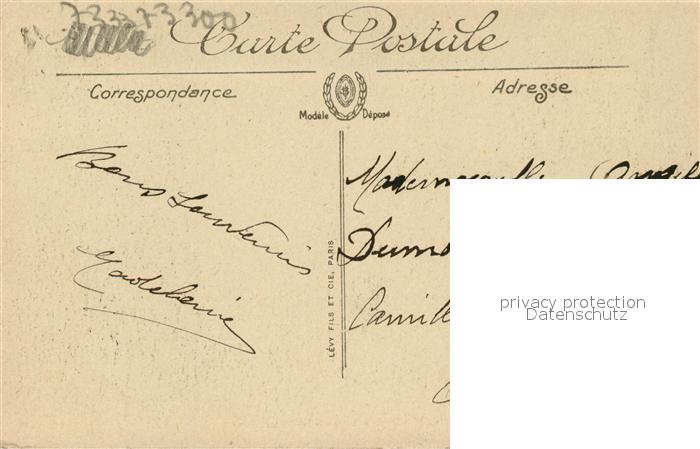 73373300
Carte Postale
Correspondance
Adresse
Modèle Déposé
Bons Souvenirs
Madeleine
LÉVY FILS ET CIE, PARIS
Mademoiselle
Dumo
Camill
privacy protection
Datenschutz